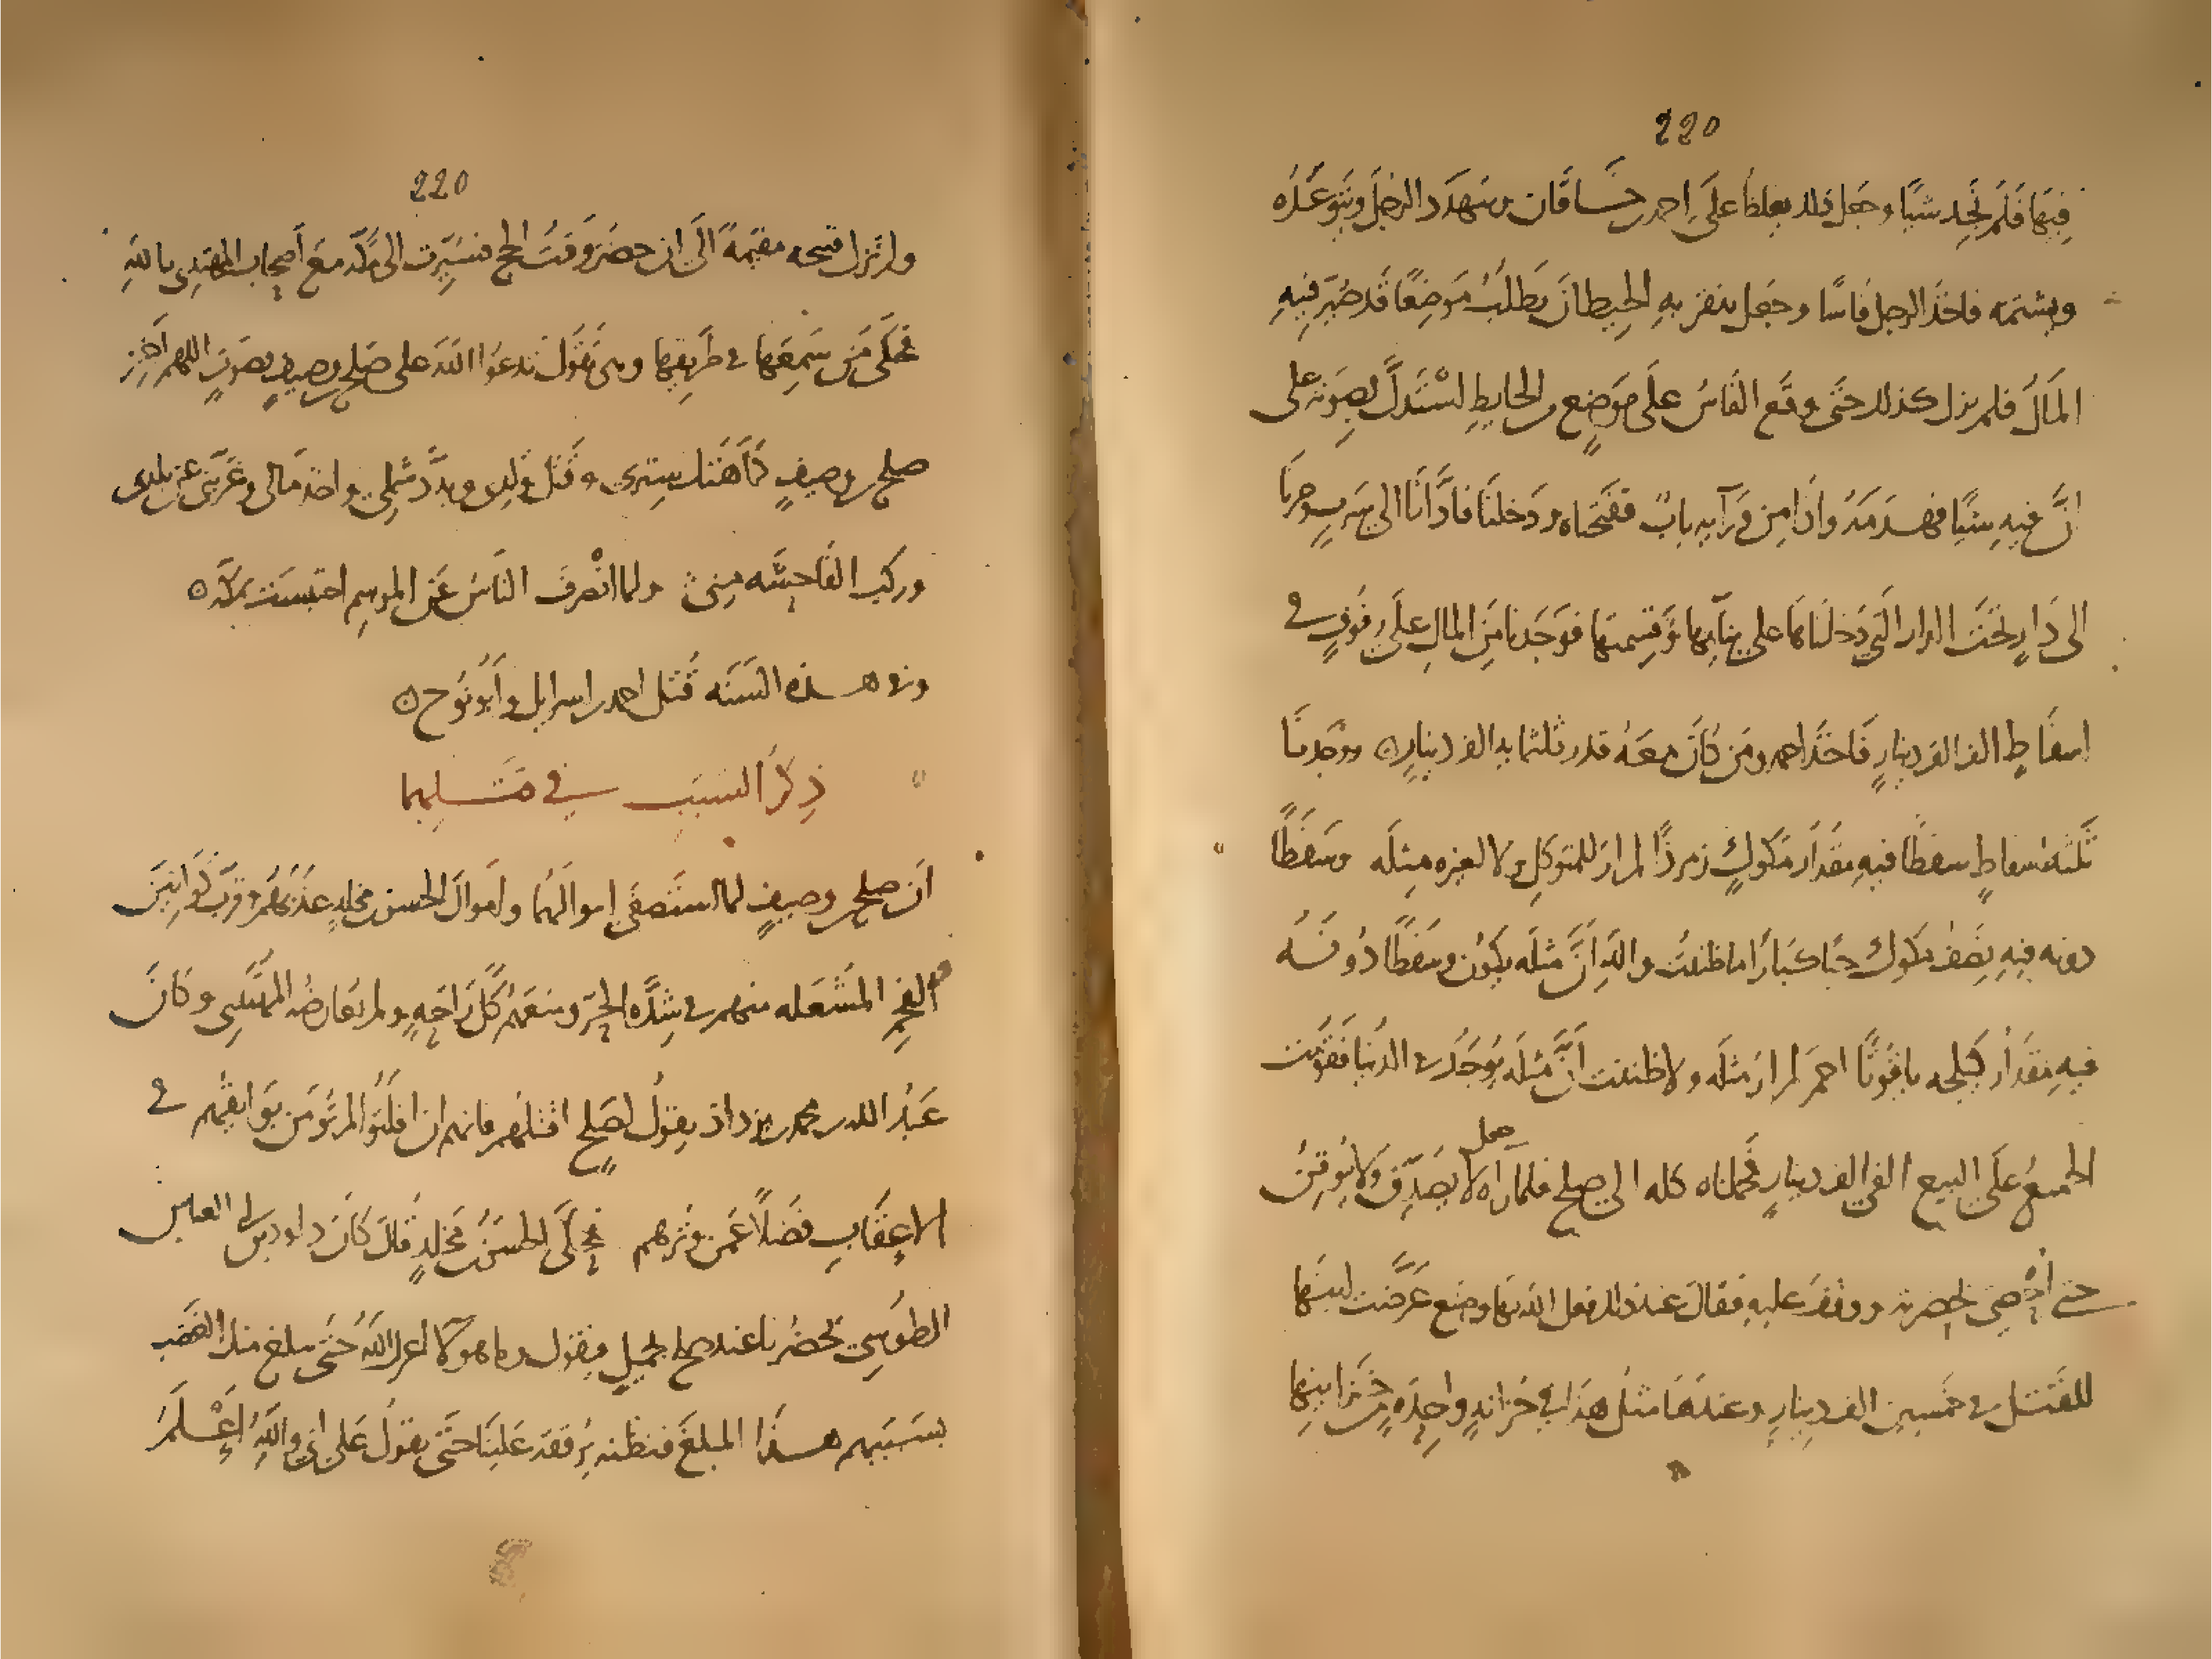 220
فيها فلم نجد شيئا وجعل ذلك يغلظ على احمد بن خاقان وتهدد الرجل ويتوعده
ويشتمه فاخذ الرجل فاسا وجعل ينقر به الحيطان يطلب موضعا قد صير فيه
المال فلم يزل كذلك حتى وقع الفاس على موضع من الحايط استدل بصوته على
ان فيه شيئا فهدمه واذا من ورآيه باب ففتحناه ودخلنا فادانا الى سرب وصرنا
الى دار تحت الدار التي دخلناها على بنآيها وقسمتها فوجدنا من المال على رفوف في
اسفاط الف الف دينار فاخذ احمد ومن كان معه قدر ثلثمايه الف دينار ووجدنا
ثلثه اسفاط سفطا فيه مقدار مكوك زمرذا لم ار للمتوكل ولا لغيره مثله وسفطا
دونه فيه نصف مكوك حبا كبارا ما ظننت والله ان مثله يكون وسفطا دونه
فيه مقدار كيلجه ياقوتا احمر لم ار مثله ولا ظننت ان مثله يوجد في الدنيا فقومت
الجميع على البيع الفي الف دينار فحملناه كله الى صلح فلما رآه جعل لا يصدق ولا يوقن
حتى احصي بحضرته ووقف عليه فقال عند ذلك فعل الله بها وصنع عرضت ابنها
للقتل في خمسين الف دينار وعندها مثل هذا في خزانه واحده من خزاينها
220
ولم تزل قبيحه مقيمة الى ان حضر وقت الحج فسيرت الى مكه مع اصحاب المهتدي بالله
فحكى من سمعها في طريقها وهي تقول تدعوا الله على صلح بن وصيف بصوت اللهم اخز
صلح بن وصيف كما هتك ستري وقتل ولدي وبدد شملي واخذ مالي وغربني عن بلدي
وركب الفاحشه مني ولما انصرف الناس عن الموسم احتبست بمكه
وفي هذه السنه قتل احمد بن اسرايل وابو نوح
ذكر السبب في قتلهما
ان صلح بن وصيف لما استصفى اموالهما واموال الحسن بن مخلد عذبهم وقرب كوانين
الفحم المشعله منهم في شده الحر ومنعهم كل راحه ولم يعارضه المهتدي وكان
عبد الله بن محمد بن يزداذ يقول لصلح اقتلهم فانهم ان افلتوا لم تومن بوايقهم في
الاعقاب فضلا عمن وترهم فحكى الحسن بن مخلد قال كان داود بن ابي العباس
الطوسي تحضرنا عند صلح فيقول وما هولا اعزك الله حتى يبلغ منك الغضب
بسببهم هذا المبلغ فنظنه يرققه علينا حتى يقول على اني والله اعلم